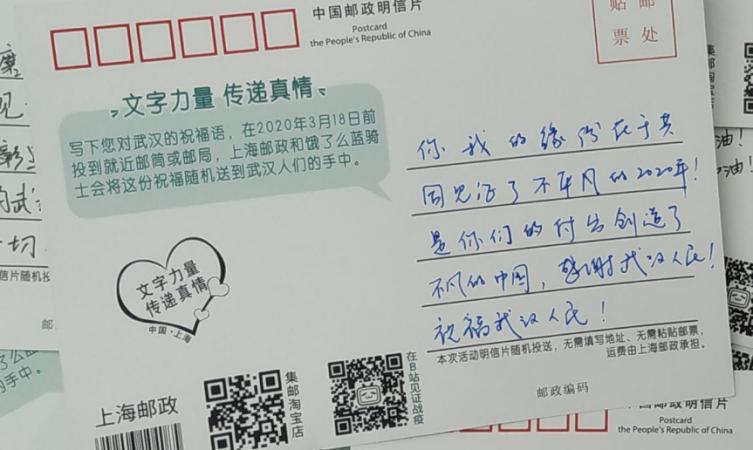 中国邮政明信片
Postcard
the People's Republic of China
贴邮
票处
文字力量 传递真情
写下您对武汉的祝福语，在2020年3月18日前
投到就近邮筒或邮局，上海邮政和饿了么蓝骑
士会将这份祝福随机送到武汉人们的手中。
你我的缘份在于共
同见证了不平凡的2020年！
是你们的付出创造了
不凡的中国，感谢武汉人民！
祝福武汉人民！
文字力量
传递真情
中国·上海
本次活动明信片随机投送，无需填写地址、无需粘贴邮票，
运费由上海邮政承担。
邮政编码
上海邮政
集邮淘宝店
在B站见证战疫
见
的武
一切
信片随机投
邮
了么蓝
的手中。
集邮淘宝
油！
油！
中国邮政明信片
Postcard
the People's Republic of China